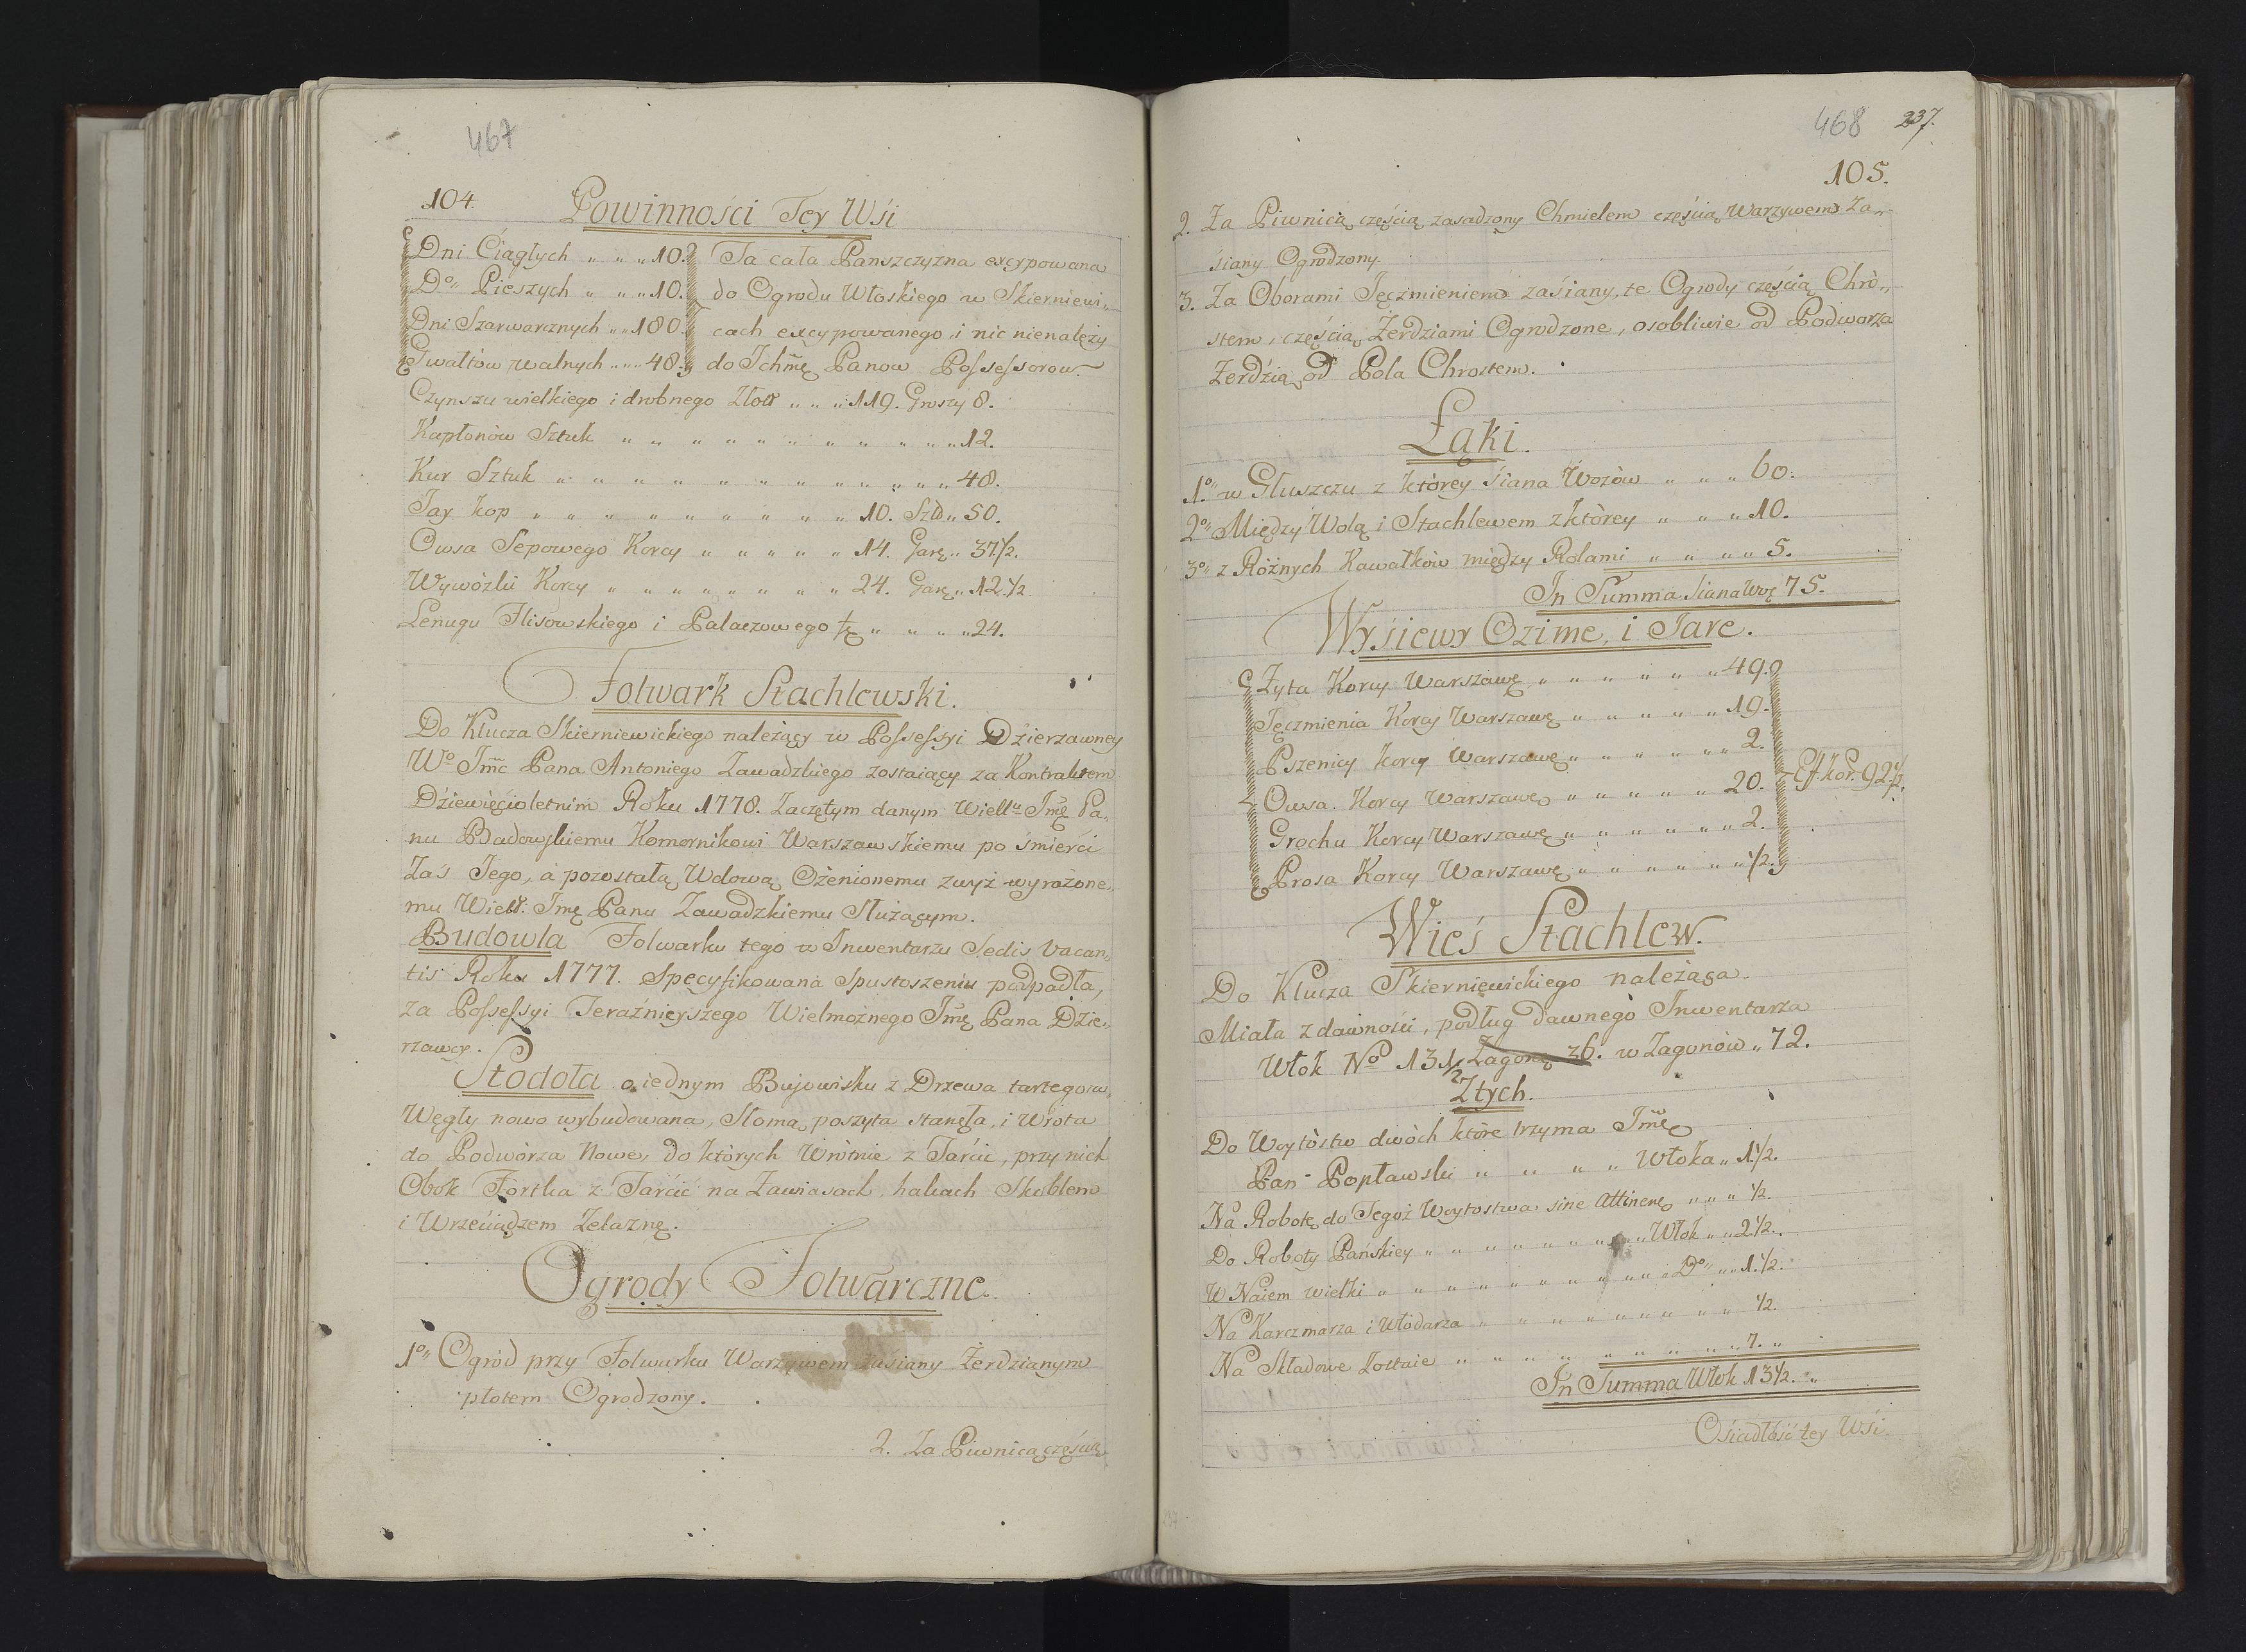 467
104.
Powinności Tey Wśi
Dni Ciągłych „ „ „ 10.
Do„ Pieszych „ „ „ 10.
Dni Szarwarcznych „ „ 180.
Gwałtów walnych „ „ „ 48.
Ta cała Panszczyzna excypowana
do Ogrodu Włoskiego w Skierniewi„
cach excypowanego, i nic nienależy
do Ichmę Panow Possessorow.
Czynszu wielkiego i drobnego Złotł „ „ „ 119. Groszy 8.
Kapłonów Sztuk „ „ „ „ „ „ „ „ „ „ „ 12.
Kur Sztuk „ „ „ „ „ „ „ „ „ „ „ „ „ 48.
Jay kop „ „ „ „ „ „ „ „ „ „ „ 10. Szt „ 50.
Owsa Sepowego Korcy „ „ „ „ „ 14. Garę „ 37 1/2.
Wywózki Korcy „ „ „ „ „ „ „ „ 24. Garę „ 12 1/2
Lenugu Flisowskiego i Pałaczowego „ „ „ „ 24.
Folwark Stachlewski.
Do Klucza Skierniewickiego należący w Possessyi Dzierzawney
Wo Jmc Pana Antoniego Zawadzkiego zostaiący za Kontraktem
Dźiewięcioletnim Roku 1778. Zaczętym danym Wiellu Jmę Pa„
nu Badowskiemu Komornikowi Warszawskiemu po śmierći
Zaś Jego, a pozostałą Wdową Ożenionemu zwyż wyrażone„
mu Wielł. Jmę Panu Zawadzkiemu Służącym.
Budowla Folwarku tego w Inwentarzu Sedis Vacan„
tis Roku 1777. Specyfikowana Spustoszeniu podpadła,
za Possessyi Teraźnieyszego Wielmożnego Jmę Pana Dzie„
rzawcy.
Stodoła o iednym Bujowisku z Drzewa tartego w
Węgły nowo wybudowana, Słomą poszyta stanęła, i Wrota
do Podworza Nowe, do których Wrótnie z Tarćic, przy nich
Obok Fortka z Tarćic na Zawiasach, hakach Skoblem
i Wrzeciądzem Zelaznę.
Ogrody Folwarczne.
1o„ Ogród przy Folwarku Warzywem zasiany Żerdzianym
płotem Ogrodzony.
2. Za Piwnicą częścią
468 237.
105.
2. Za Piwnicią częścią zasadzony Chmielem częścią Warzywem Za„
śiany Ogrodzony.
3. Za Oborami Jęczmieniem zaśiany, te Ogrody częścią Chró„
stem, częścią Żerdziami Ogrodzone, osobliwie od Podworza
Żerdźią od Pola Chrostem.
Łąki.
1o„ w Głuszczu z którey śiana Wozów „ „ „ 60.
2o„ Między Wolą i Stachlewem z którey „ „ „ 10.
3o„ z Różnych Kawałków między Rolami „ „ „ „ 5.
In Summa Siana Woz 75.
Wysiewy Ozime, i Jare.
Żyta Korcy Warszawę „ „ „ „ „ „ 49.
Jęczmienia Korcy Warszawę „ „ „ „ „ 19.
Pszenicy korcy Warszawę „ „ „ „ „ „ 2.
Owsa Korcy Warszawę „ „ „ „ „ 20.
Grochu Korcy Warszawę „ „ „ „ „ „ 2.
Prosa Korcy Warszawę „ „ „ „ „ „ 1/2.
kor. 92 1/2.
Wieś Stachlew.
Do Klucza Skierniewickiego należąca.
Miała z dawności, podług dawnego Inwentarza
Włok No 13 1/2 Zagonę 36. w Zagonów „ 72.
Ztych.
Do Woytóstw dwóch które trzyma Jmę
Pan Popławski „ „ „ „ Włoka „ 1 1/2.
Na Robotę do Tegoż Woytostwa sine Attinenę „ „ „ 1/2.
Do Roboty Pańskiey „ „ „ „ „ „ „ „ Włok „ „ 2 1/2.
W Naiem wielki „ „ „ „ „ „ „ „ „ „ Do„ „ „ 1 1/2.
Na Karczmarza i Włodarza „ „ „ „ „ „ „ „ „ 1/2.
Na Składowe Zostaie „ „ „ „ „ „ „ „ „ „ 7. „
In Summa Włok 13 1/2. „
Ośiadłość tey Wśi